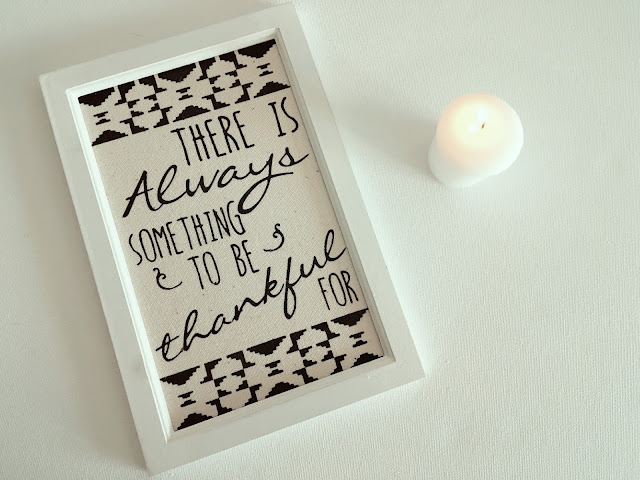 THERE IS
Always
SOMETHING
TO BE
thankful
FOR